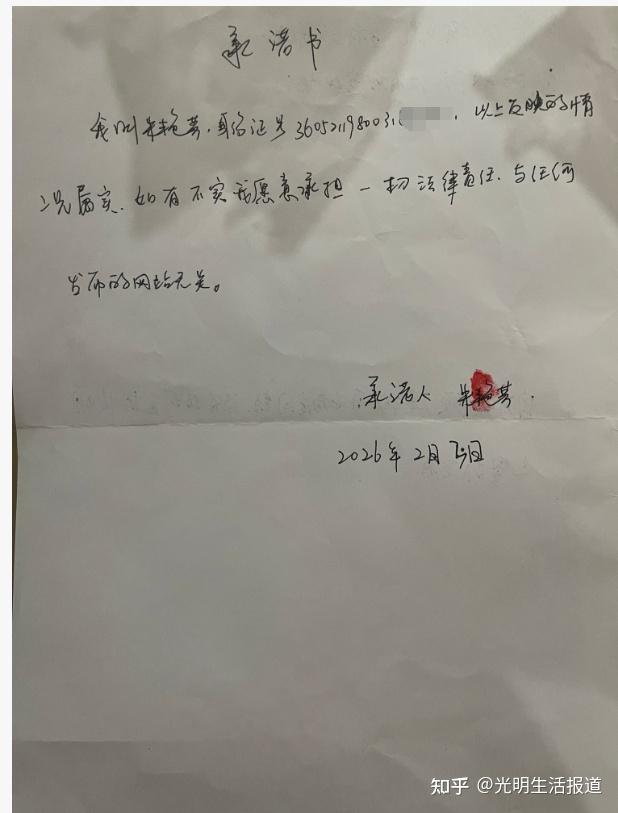 承诺书
我叫朱艳英，身份证号3605211980031，以上反映的情
况属实，如有不实我愿意承担一切法律责任，与任何
发布的网站无关。
承诺人 朱艳英
2026年2月 日
知乎 @光明生活报道